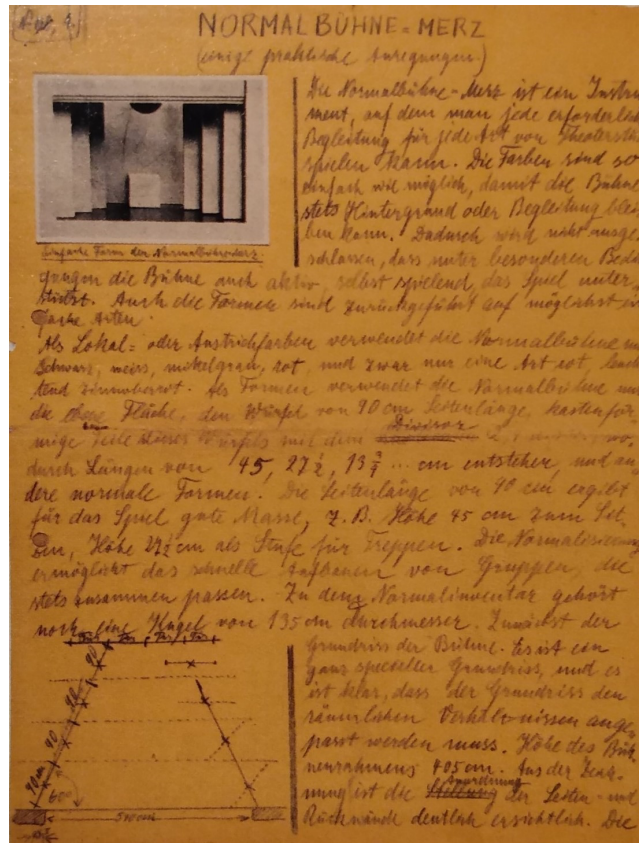 NORMALBÜHNE=MERZ
(einige praktische Anregungen)
Die Normalbühne-Merz ist ein Instru
ment, auf dem man jede erforderlich
Begleitung für jede Art von Theaterstü
spielen kann. Die Farben sind so
einfach wie möglich, damit die Bühne
stets Hintergrund oder Begleitung blei
ben kann. Dadurch wird nicht ausge
schlossen, dass unter besonderen Bedin
Einfache Form der Normalbühne Merz
gungen die Bühne auch aktiv, selbst spielend, das Spiel unter
stützt. Auch die Formen sind zurückgeführt auf möglichst ein
fache Arten.
Als Lokal= oder Anstrichfarben verwendet die Normalbühne nur
Schwarz, weiss, mittelgrau, rot, und zwar nur eine Art rot, leuch
tend zinnoberrot. Als Formen verwendet die Normalbühne nur
die ebene Fläche, den Würfel von 90 cm Seitenlänge, kastenför
mige Teile dieses Würfels mit dem Divisor
durch Längen von 45, 27½, 13¾ ... cm entstehen, und an
dere normale Formen. Die Seitenlänge von 90 cm ergibt
für das Spiel gute Masse, z.B. Höhe 45 cm zum Sit
zen, Höhe 27½ cm als Stufe für Treppen. Die Normalisierung
ermöglicht das schnelle Aufbauen von Gruppen, die
stets zusammen passen. Zu dem Normalinventar gehört
noch eine Kugel von 135 cm Durchmesser. Zunächst der
Grundriss der Bühne. Es ist ein
ganz spezieller Grundriss, und es
ist klar, dass der Grundriss den
räumlichen Verhältnissen ange-
passt werden muss. Höhe des Büh
nenrahmens 405 cm. Aus der Zeich
nung ist die Anordnung der Seiten- und
Rückwände deutlich ersichtlich. Die
90
90
90
90 cm
60°
500 cm